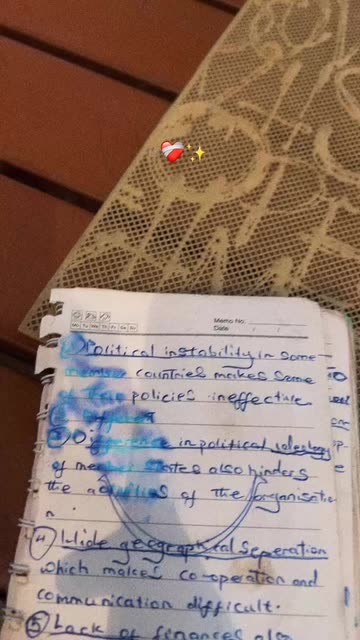 Memo No.
Date / /
Mo Tu We Th Fr Sa Su
Political instability in some
member countries makes some
of policies ineffective
Difference in political
of member states also hinders
the activities of the organisatio
n.
4 Wide geographical Seperation
which makes co-operation and
communication difficult.
5 Lack of finances also